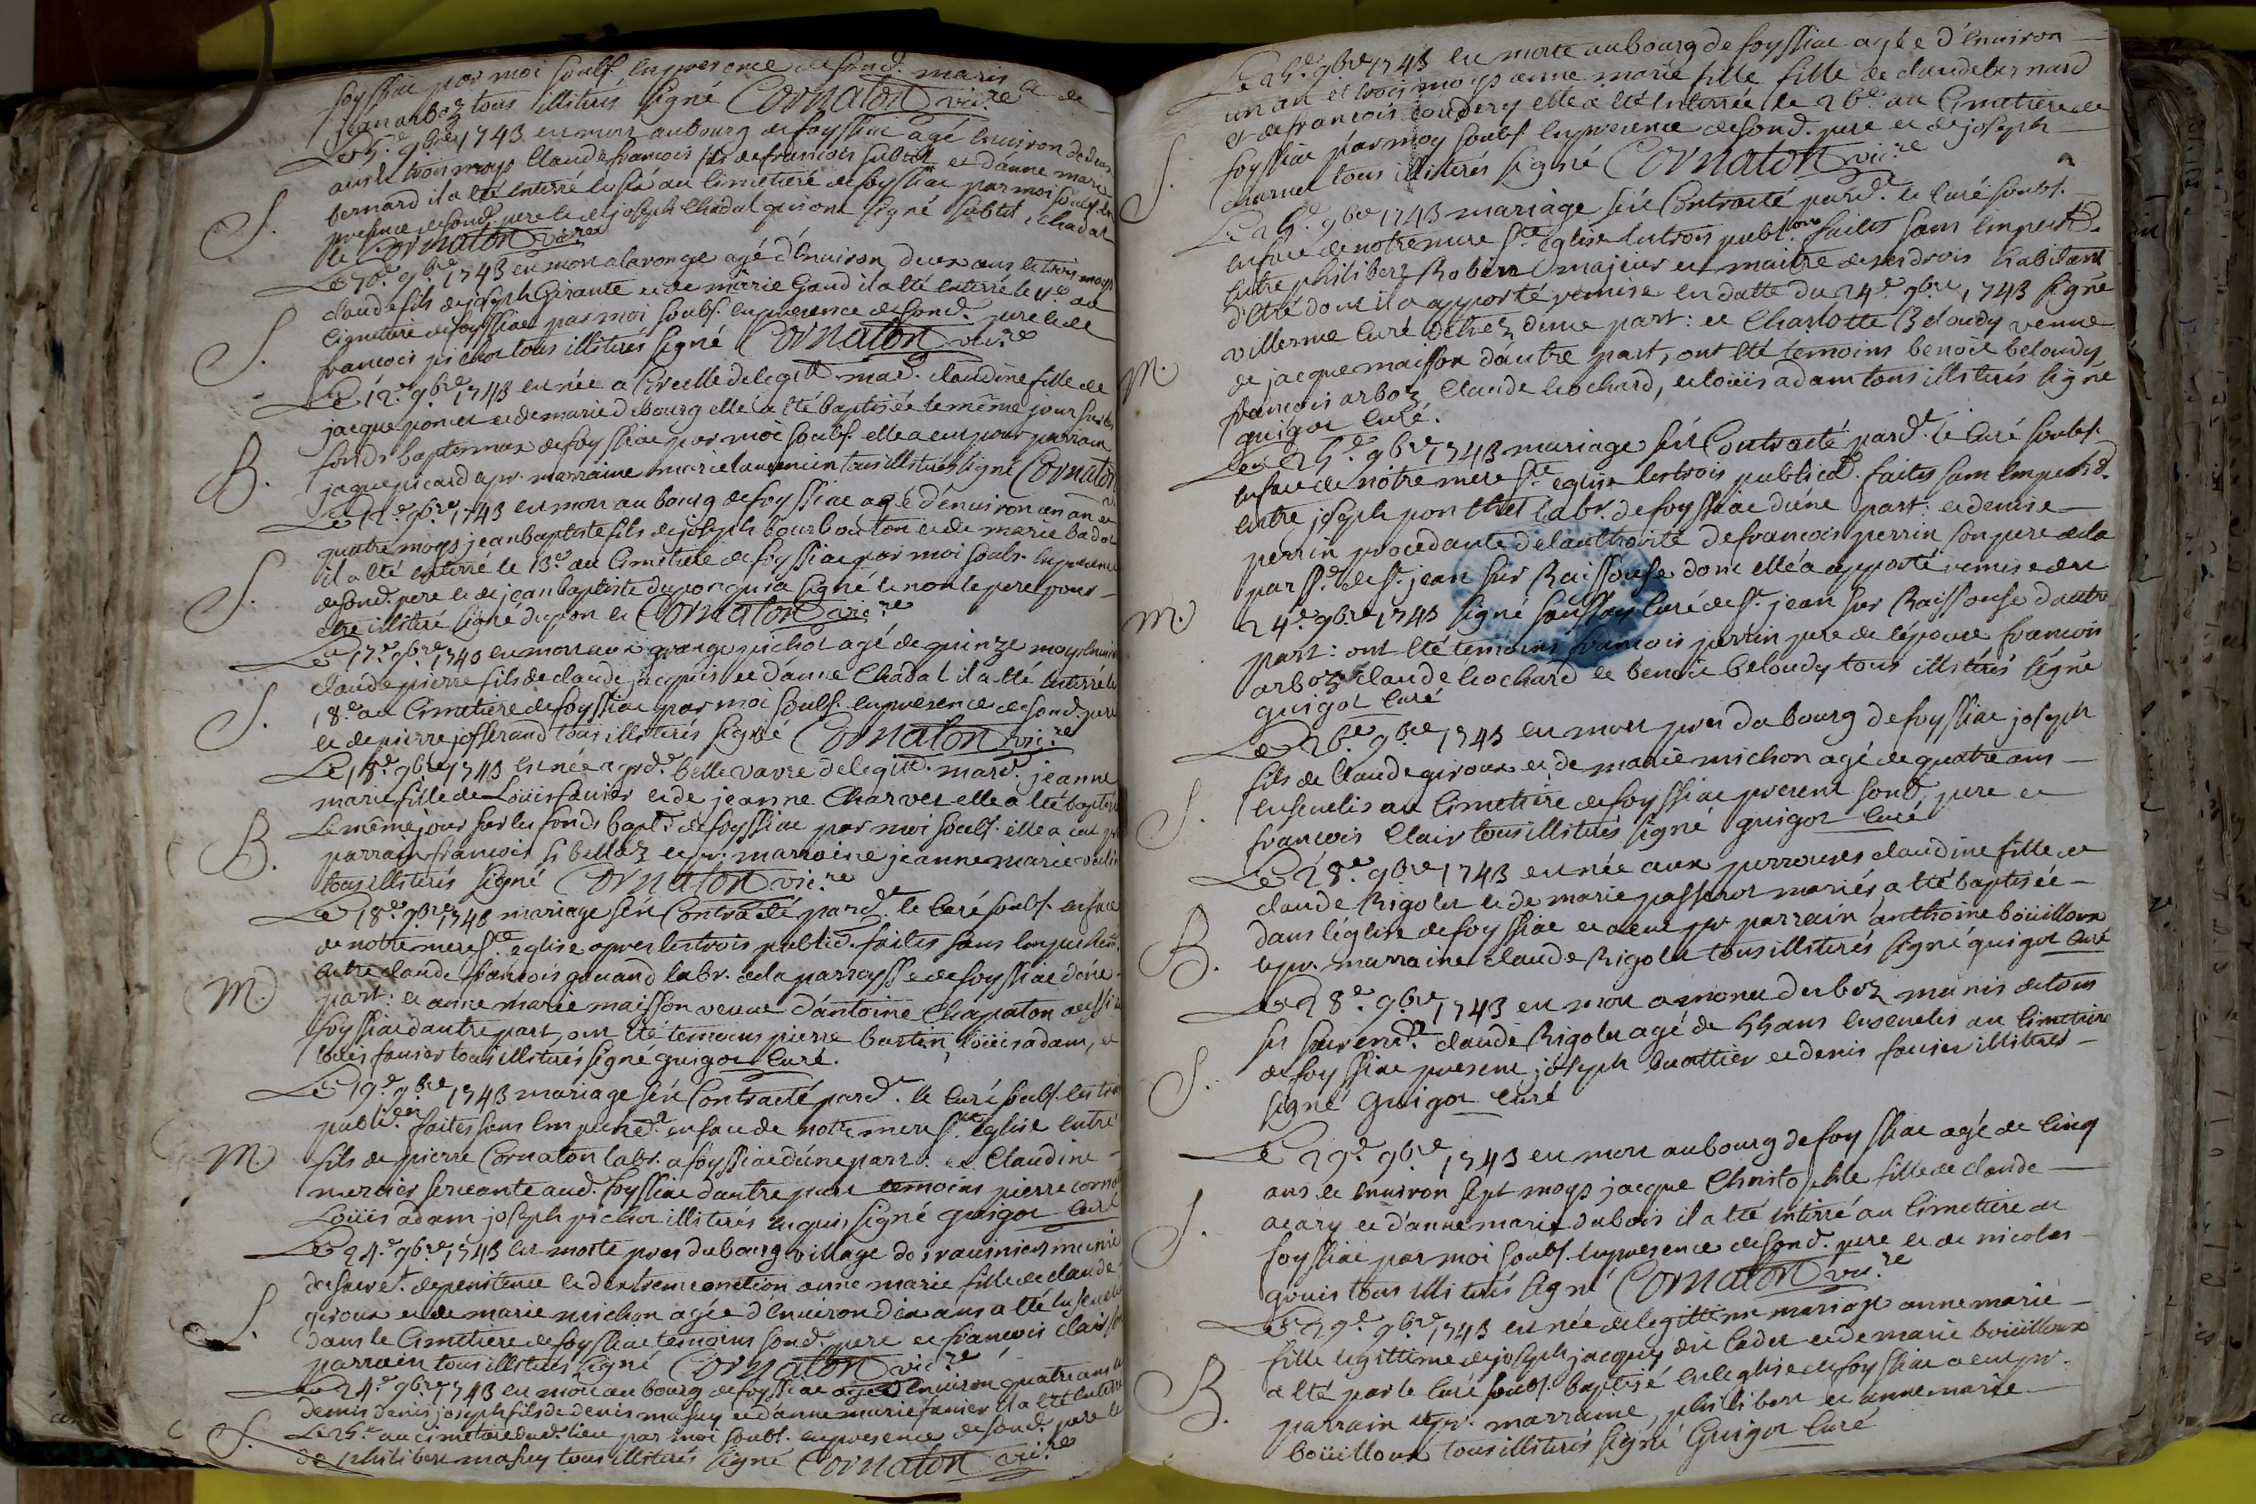 foyssiac par moi soubs. en presence de sond. maris et de
jean arboz tous illiterés signé Cornaton vic.re
Le 5.e 9bre 1743 est mort au bourg de foyssiac agé environ de deux
ans et trois moys claude francois fils de francois subtil et d'anne marie
bernard il a eté enterré au cimetiere de foyssiac par moi soubs. en
S.
presence de sond. pere et de joseph chadal qui ont signé subtil, chadal
et Cornaton vic.re
Le 10.e 9bre 1743 est mort a la ronge agé d'environ deux ans et trois moys
claude fils de joseph Girante et de marie Gaud il a eté enterré le 11.e au
S.
cimetiere de foyssiac par moi soubs. en presence de sond. pere et de
francois pichot tous illiterés signé Cornaton vic.re
Le 12.e 9bre 1743 est née a Circelle de legit. mar. claudine fille de
jacque poncet et de marie debourg elle a eté baptisée le même jour sur les
B.
fonds baptismaux de foyssiac par moi soubs. elle a eut pour parrain
jaque picard et pr. marraine marie laurencin tous illiterés signé Cornaton
Le 12.e 9bre 1743 est mort au bourg de foyssiac agé d'environ un an et
quatre moys jean baptiste fils de joseph bourbouton et de marie badot
S.
il a eté enterré le 13.e au cimetiere de foyssiac par moi soubs. en presence
de sond. pere et de jean baptiste dupon qui a signé et non le pere pour
etre illiteré signé dupon et Cornaton vic.re
Le 17.e 9bre 1743 est mort aux granges pichot agé de quinze moys environ
claude pierre fils de claude jacquis et d'anne Chadal il a eté enterré le
S.
18.e au cimetiere de foyssiac par moi soubs. en presence de sond. pere
et de pierre josserand tous illiterés signé Cornaton vic.re
Le 18.e 9bre 1743 est née a belle vavre de legit. mar. jeanne
marie fille de Loüis fausier et de jeanne Charvet elle a eté baptisée
B.
le même jour sur les fonds bapt. de foyssiac par moi soubs. elle a eut pr
parrain francois et pr. marraine jeanne marie
tous illiterés signé Cornaton vic.re
Le 18.e 9bre 1743 mariage fut Contracté pard. le Curé soubs. en face
de notre mere ste eglise apres les trois public. faites sans empechem.
M.
entre claude francois gouand labr. de la parroysse de foyssiac d'une
part: et anne marie maisson veuve d'antoine Chapaton aussi de
foyssiac d'autre part, ont eté temoins pierre bastin, loüis adam, et
loüis fausier tous illiterés signé guigot Curé.
Le 19.e 9bre 1743 mariage fut Contracté pard. le Curé soubs. les trois
public. faites sans empeched. en face de notre mere ste eglise entre
M.
fils de pierre Cornaton labr. a foyssiac d'une part: et Claudine
mercier servante aud. foyssiac d'autre part temoins pierre cornaton
Loüis adam joseph pichot illiterés enquis, signé guigot Curé
Le 24.e 9bre 1743 est morte pres du bourg village de munie
des sacre.t de penitence et d'extreme onction anne marie fille de claude
S.
giroux et de marie michon agée d'environ dix ans a eté ensevelie
dans le Cimetiere de foyssiac temoins sond. pere et francois clair son
parrain tous illiterés signé Cornaton vic.re
Le 24.e 9bre 1743 est mort au bourg de foyssiac agé d'environ quatre ans et
demis denis joseph fils de denis masuy et d'anne marie fausier il a eté enterré
S.
le 25.e au cimetiere dud. lieu par moi soubs. en presence de sond. pere et
de philibert masuy tous illiterés signé Cornaton vic.re
Le 25.e 9bre 1743 est morte au bourg de foyssiac agée d'environ
un an et trois moys anne marie fille fille de claude bernard
et de francois coudery elle a eté enterrée le 26.e au Cimetiere de
S.
foyssiac par moy soubs. en presence de sond. pere et de joseph
charnet tous illiterés signé Cornaton vic.re
Le 25.e 9bre 1743 mariage fut Contracté pard. le Curé soubs.
en face de notre mere ste eglise les trois publ.ions faites sans empechd.
entre philibert Robert majeur et maitre de ses drois habitant
d'etré dont il a apporté remise en datte du 24.e 9bre 1743 signé
villerme Curé d'etrez d'une part: et Charlotte Beloudy veuve
M.
de jacque maisson d'autre part, ont eté temoins benoit beloudy
francois arboz, claude brochard, et loüis adam tous illiterés signé
guigot Curé.
Le 25.e 9bre 1743 mariage fut Contracté pard. le Curé soubs.
en face de notre mere ste eglise les trois publicd. faites sans empechd.
entre joseph ponthet labr. de foyssiac d'une part: et denise
perrin procedante de l'authorité de francois perrin son pere de la
parss.e de St. jean sur Raissouse dont elle a apporté remise du
M.
24.e 9bre 1743 signé Curé de St. jean sur Raissouse d'autre
part: ont eté témoins francois perrin pere de l'épouse francois
arboz claude brochard et benoit beloudy tous illiterés signé
guigot Curé
Le 26.e 9bre 1743 est mort pres du bourg de foyssiac joseph
fils de Claude giroux et de marie michon agé de quatre ans
S.
ensevelis au Cimetiere de foyssiac present sond. pere et
francois Clair tous illiterés signé guigot Curé
Le 28.e 9bre 1743 est née aux perrouses claudine fille de
claude Rigolet et de marie passerot mariés, a eté baptisée
B.
dans l'église de foyssiac et a eut pr parrain anthoine boüilloux
et pr. marraine claude Rigolet tous illiterés signé guigot Curé
Le 28.e 9bre 1743 est mort a monet du boz munis de tous
ses sacrem.ts claude Rigolet agé de 55 ans ensevelis au Cimetiere
S.
de foyssiac present joseph buattier et denis fausier illiterés
signé Guigot Curé
Le 29.e 9bre 1743 est mort au bourg de foyssiac agé de Cinq
ans et environ sept moys jacque Christophle fille de claude
S.
acary et d'anne marie dubois il a eté enterré au Cimetiere de
foyssiac par moi soubs. en presence de sond. pere et de nicolas
gouis tous illiterés signé Cornaton vic.re
Le 29.e 9bre 1743 est née de legittime mariage anne marie
fille legittime de joseph jacquy dit Cadet et de marie boüilloux
B.
a eté par le Curé soubs. baptisé en l'eglise de foyssiac a eut pr.
parrain et pr. marraine, philibert et anne marie
boüilloux tous illiterés signé Guigot Curé